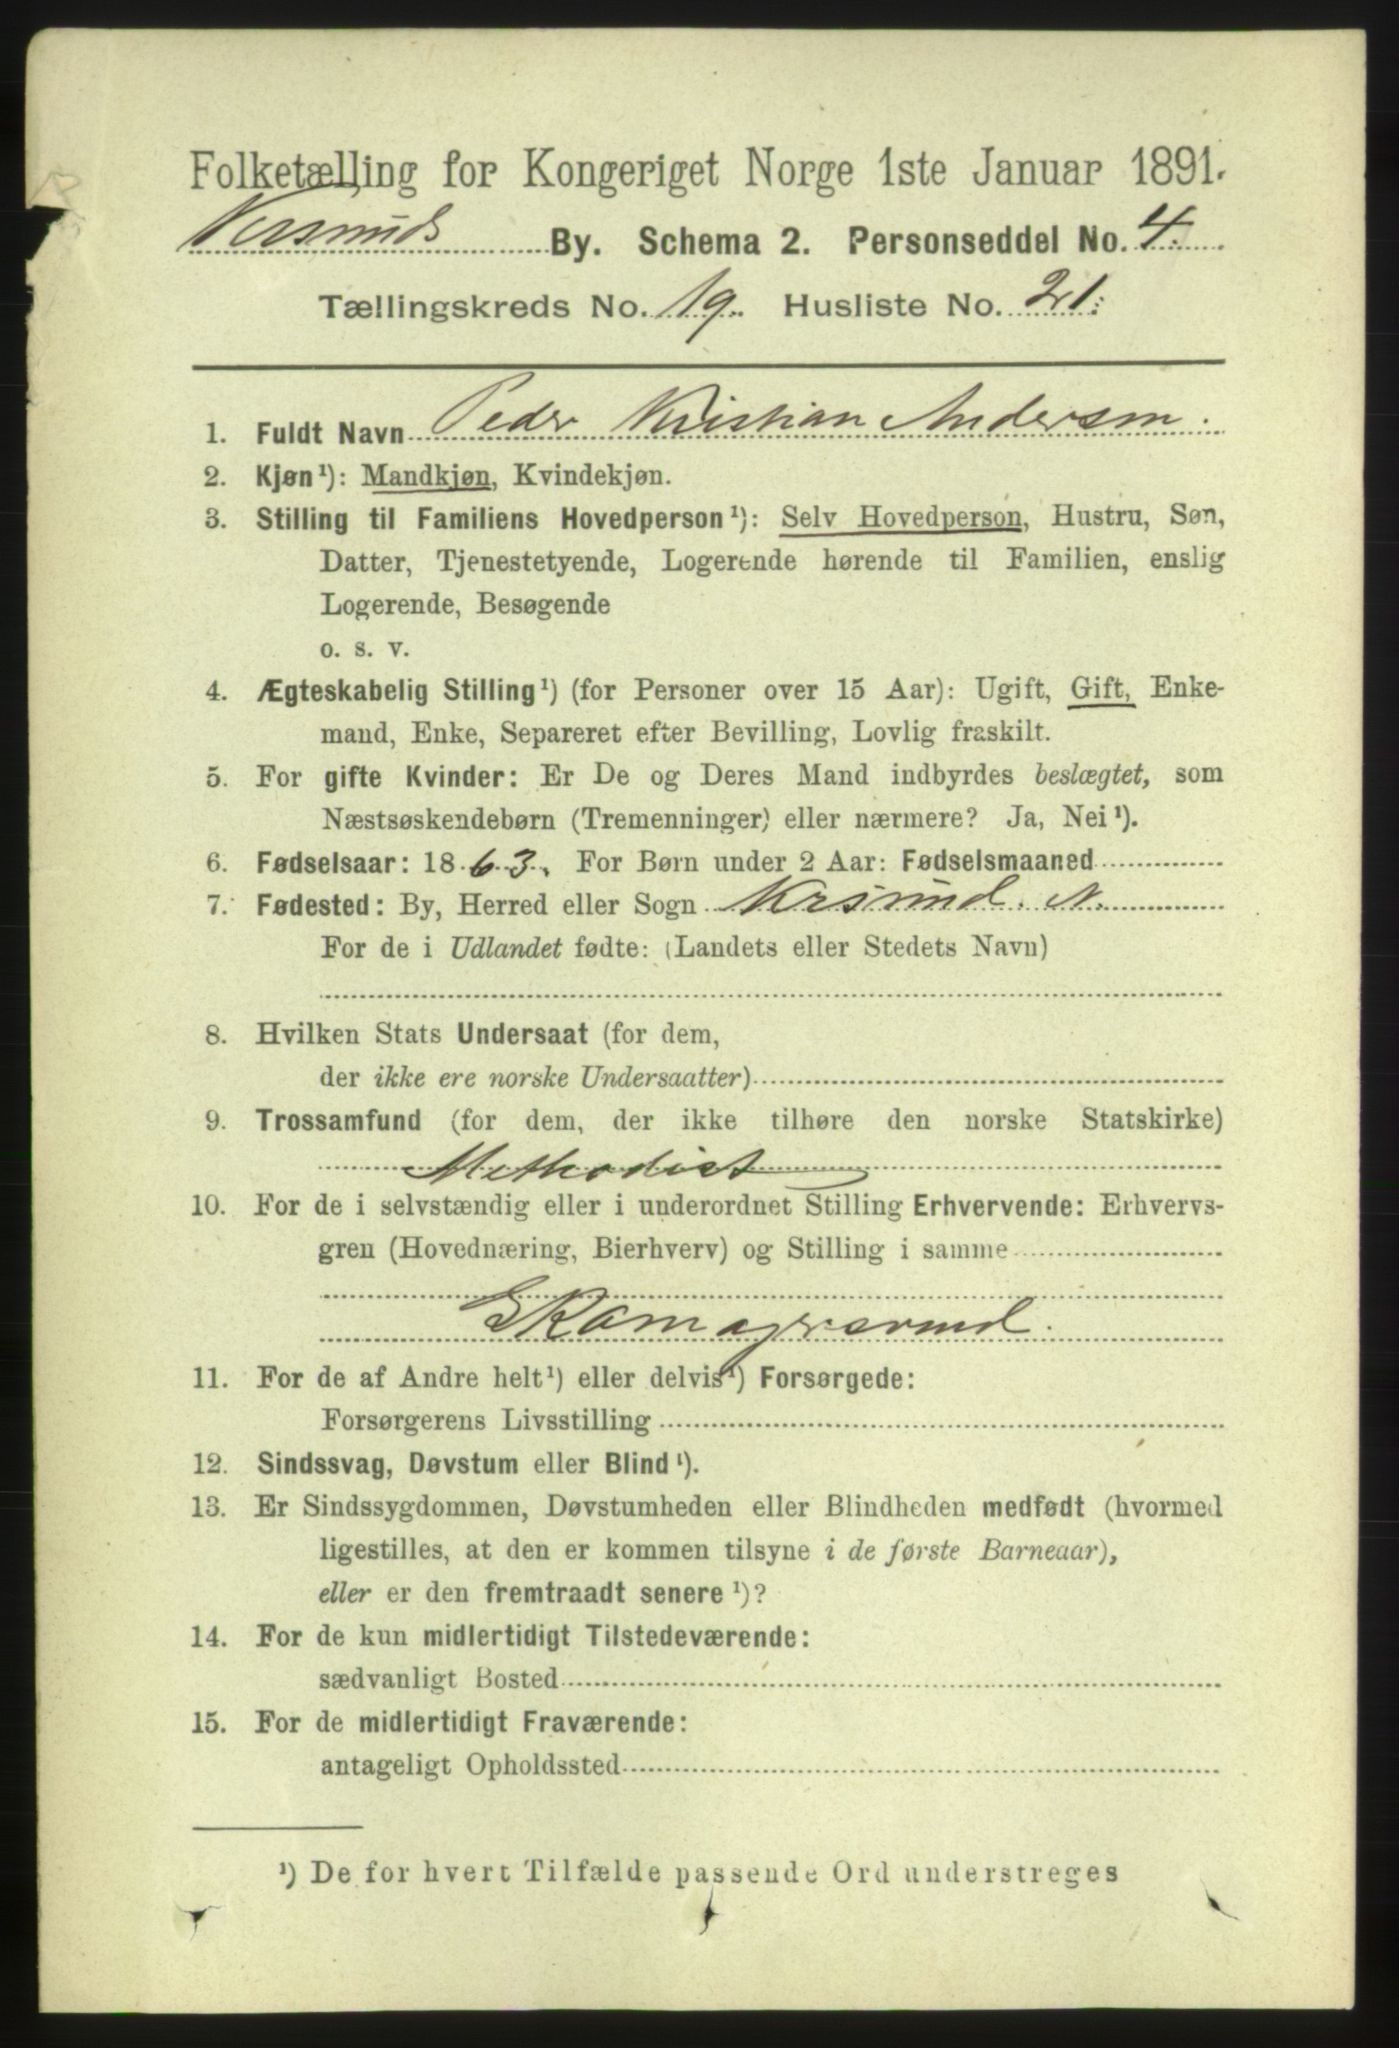 Folketælling for Kongeriget Norge 1ste Januar 1891.
Krsunds By. Schema 2. Personseddel No. 4.
Tællingskreds No. 19. Husliste No. 21.
1. Fuldt Navn Peder Kristian Andersen.
2. Kjøn¹): Mandkjøn, Kvindekjøn.
3. Stilling til Familiens Hovedperson¹): Selv Hovedperson, Hustru, Søn,
Datter, Tjenestetyende, Logerende hørende til Familien, enslig
Logerende, Besøgende
o. s. v.
4. Ægteskabelig Stilling¹) (for Personer over 15 Aar): Ugift, Gift, Enke-
mand, Enke, Separeret efter Bevilling, Lovlig fraskilt.
5. For gifte Kvinder: Er De og Deres Mand indbyrdes beslægtet, som
Næstsøskendebørn (Tremenninger) eller nærmere? Ja, Nei¹).
6. Fødselsaar: 1863. For Børn under 2 Aar: Fødselsmaaned
7. Fødested: By, Herred eller Sogn Krsund. N.
For de i Udlandet fødte: (Landets eller Stedets Navn)
8. Hvilken Stats Undersaat (for dem,
der ikke ere norske Undersaatter)
9. Trossamfund (for dem, der ikke tilhøre den norske Statskirke)
Methodist
10. For de i selvstændig eller i underordnet Stilling Erhvervende: Erhvervs-
gren (Hovednæring, Bierhverv) og Stilling i samme
Skomagersvend.
11. For de af Andre helt¹) eller delvis¹) Forsørgede:
Forsørgerens Livsstilling
12. Sindssvag, Døvstum eller Blind¹).
13. Er Sindssygdommen, Døvstumheden eller Blindheden medfødt (hvormed
ligestilles, at den er kommen tilsyne i de første Barneaar),
eller er den fremtraadt senere¹)?
14. For de kun midlertidigt Tilstedeværende:
sædvanligt Bosted
15. For de midlertidigt Fraværende:
antageligt Opholdssted
¹) De for hvert Tilfælde passende Ord understreges